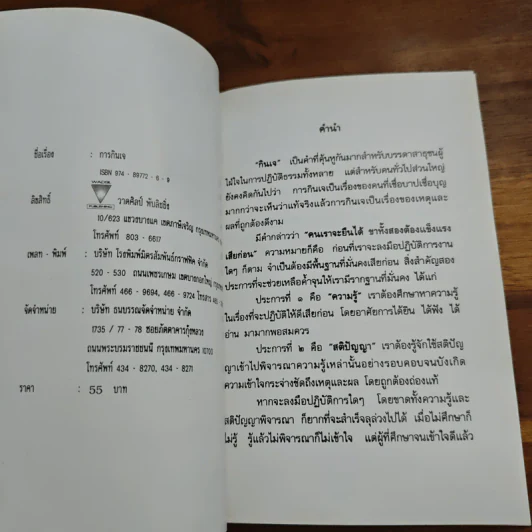 ชื่อเรื่อง : การกินเจ
ISBN 974 - 89772 - 6 - 9
ลิขสิทธิ์ : วาดศิลป์ พับลิชชิ่ง
10/623 แขวงบางแค เขตภาษีเจริญ
โทรศัพท์ 803 - 6617
เพลท - พิมพ์ : บริษัท โรงพิมพ์มิตรสัมพันธ์กราฟฟิค จำกัด
520 - 530 ถนนเพชรเกษม
โทรศัพท์ 466 - 9694, 466 - 9724 โทรสาร
จัดจำหน่าย : บริษัท ธนบรรณจัดจำหน่าย จำกัด
1735 / 77 - 78 ซอยภัตตาคารกุ้งหลวง
ถนนพระบรมราชชนนี กรุงเทพมหานคร 10700
โทรศัพท์ 434 - 8270, 434 - 8271
ราคา : 55 บาท
คำนำ
"กินเจ" เป็นคำที่คุ้นหูกันมากสำหรับบรรดาสาธุชนผู้
ใฝ่ใจในการปฏิบัติธรรมทั้งหลาย แต่สำหรับคนทั่วไปส่วนใหญ่
ยังคงคิดกันไปว่า การกินเจเป็นเรื่องของคนที่เชื่อบาปเชื่อบุญ
มากกว่าจะเห็นว่าแท้จริงแล้วการกินเจเป็นเรื่องของเหตุและ
ผลที่ถูกต้องดีงาม
มีคำกล่าวว่า "คนเราจะยืนได้ ขาทั้งสองต้องแข็งแรง
เสียก่อน" ความหมายก็คือ ก่อนที่เราจะลงมือปฏิบัติการงาน
ใดๆ ก็ตาม จำเป็นต้องมีพื้นฐานที่มั่นคงเสียก่อน สิ่งสำคัญสอง
ประการที่จะช่วยเหลือค้ำจุนให้เรามีรากฐานที่มั่นคง ได้แก่
ประการที่ ๑ คือ "ความรู้" เราต้องศึกษาหาความรู้
ในเรื่องที่จะปฏิบัติให้ดีเสียก่อน โดยอาศัยการได้ยิน ได้ฟัง ได้
อ่าน มามากพอสมควร
ประการที่ ๒ คือ "สติปัญญา" เราต้องรู้จักใช้สติปัญ
ญาเข้าไปพิจารณาความรู้เหล่านั้นอย่างรอบคอบจนบังเกิด
ความเข้าใจกระจ่างชัดถึงเหตุและผล โดยถูกต้องถ่องแท้
หากจะลงมือปฏิบัติการใดๆ โดยขาดทั้งความรู้และ
สติปัญญาพิจารณา ก็ยากที่จะสำเร็จลุล่วงไปได้ เมื่อไม่ศึกษาก็
ไม่รู้ รู้แล้วไม่พิจารณาก็ไม่เข้าใจ แต่ผู้ที่ศึกษาจนเข้าใจดีแล้ว